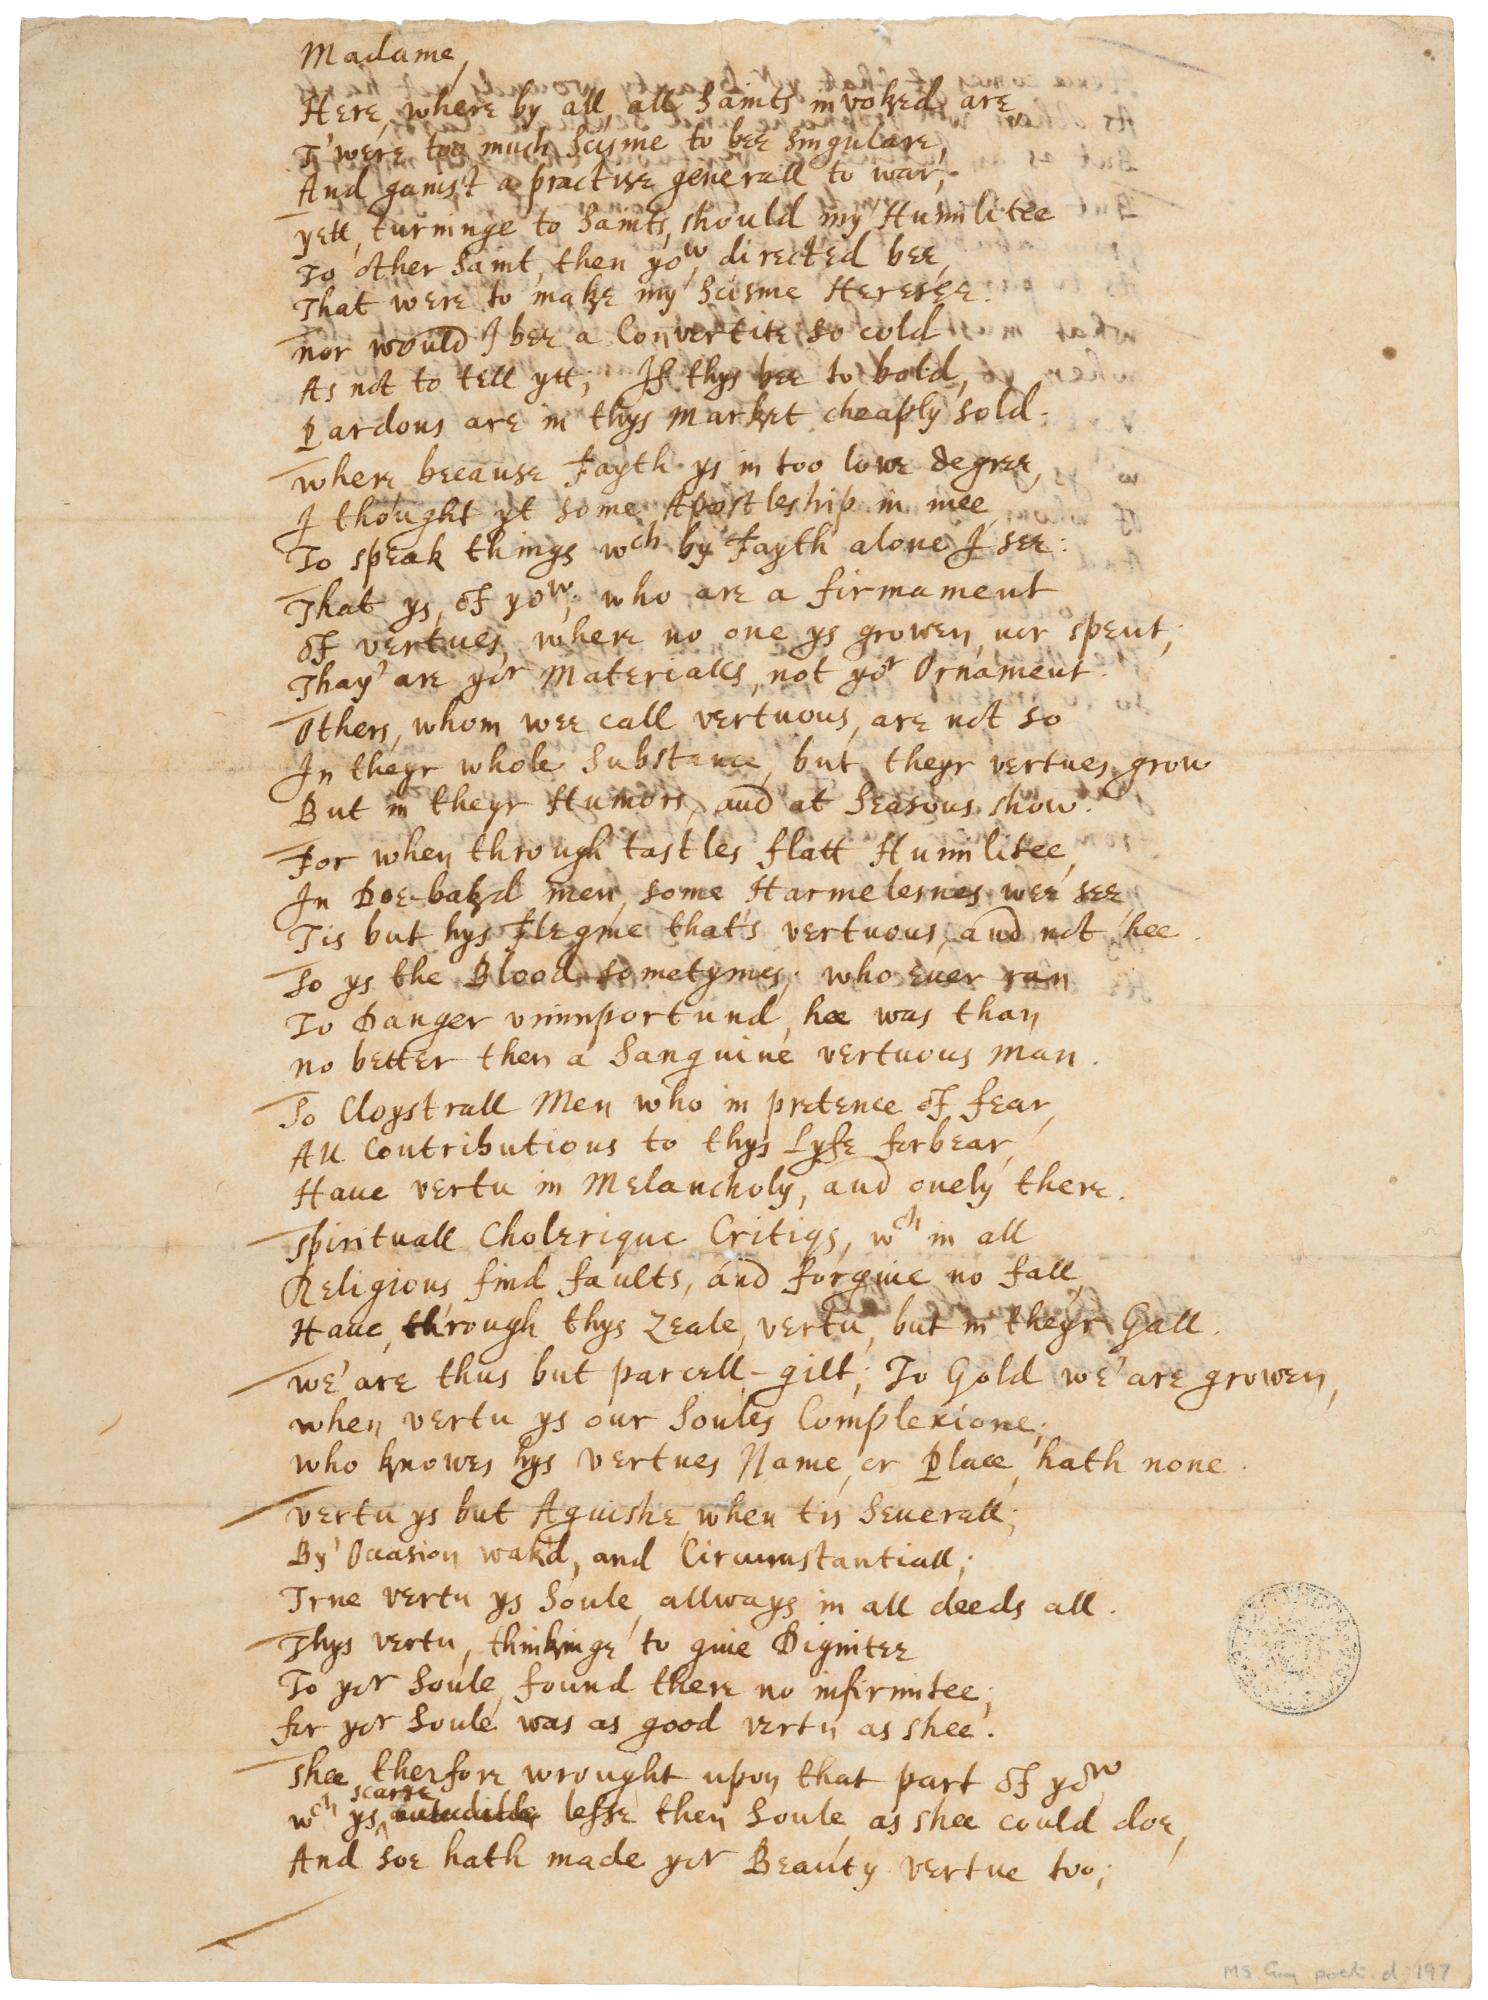 Madame,
Here, where by all, all Saints invoked are
T'were too much Scisme to bee Singulare,
And gainst a practise generall to war;
yett, turninge to Saints, should my' Humilitee
To other Saint, then yow, directed bee,
That were to make my Scisme Heresee.
nor would I bee a Convertite so cold
As not to tell ytt; If thys bee to bold,
Pardons are in thys Market cheaply sold.
where because Fayth ys in too lowe degree,
I thought yt some Apostleship in mee,
To speak things wch by Fayth alone I see:
That ys, of yow; who are a firmament
of vertues, where no one ys growen, nor spent;
Thay' are yor Materialls, not yor Ornament.
Others, whom wee call vertuous, are not so
In theyr whole Substance, but theyr vertues grow
But in theyr Humors, and at Seasons show.
For when through tastles flatt Humilitee,
In Doe-bakd men, some Harmelesnes wee see,
Tis but hys Flegme that's vertuous, and not hee.
So ys the Blood sometymes; who euer ran
To Danger vnimportund, hee was than
no better then a Sanguine vertuous man.
So Cloystrall Men who in pretence of fear,
All Contributions to thys Lyfe forbear,
Haue vertu in Melancholy, and onely there.
spirituall Cholerique Critiqs, wch in all
Religions find faults, and forgiue no fall,
Haue, through thys Zeale, vertu, but in theyr Gall.
we' are thus but parcell-gilt; To Gold we' are growen,
when vertu ys our Soules Complexione;
who knowes hys vertues Name, or Place, hath none.
vertu ys but Aguishe, when tis Seuerall;
By' Occasion wak'd, and Circumstantiall;
True vertu ys Soule, allways in all deeds all.
Thys vertu, thinkinge to giue Dignitee
To yor Soule, found there no infirmitee;
for yor Soule was as good vertu as shee.
shee therfore wrought upon that part of yow,
scarse
wch ys lesse then Soule, as shee could doe,
And soe hath made yor Beauty vertue too;
MS. Eng. poet. d. 197